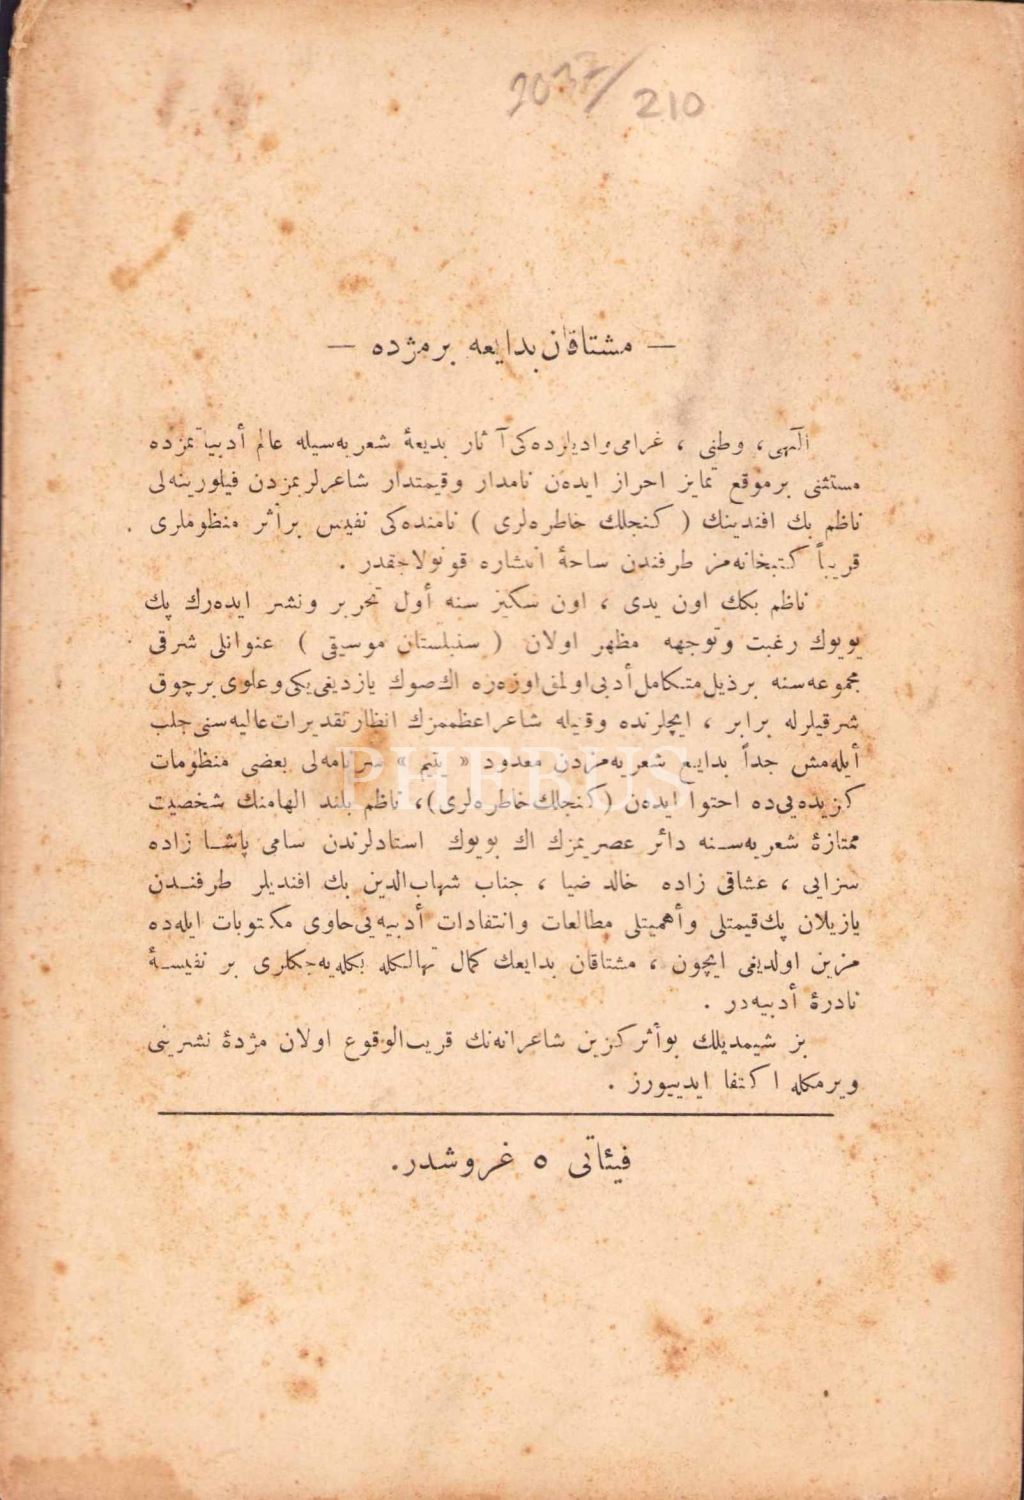 2037/210
— مشتاقان بدایعه بر مژده —
الٓهی، وطنی ، غرامی وادیلرده‌کی آثار بدیعهٔ شعریه‌سیله عالم أدبیاتمزده
مستثنی بر موقع تمایز احراز ایده‌ن نامدار وقیمتدار شاعرلریمزدن فیلورینه‌لی
ناظم بك افندینك ( کنجلك خاطره‌لری ) نامنده‌کی نفیس بر أثر منظوملری
قریباً کتبخانه‌مز طرفندن ساحهٔ انتشاره قونولاجقدر .
ناظم بکك اون یدی ، اون سکیز سنه أول تحریر ونشر ایده‌رك پك
بویوك رغبت وتوجهه مظهر اولان ( سنبلستان موسیقی ) عنوانلی شرقی
مجموعه‌سنه بر ذیل متکامل أدبی اولمق اوزه‌ره اك صوك یازدیغی یکی وعلوی بر چوق
شرقیلرله برابر ، ایچلرنده وقتیله شاعر اعظممزك انظار تقدیرات عالیه‌سنی جلب
أیله‌مش جداً بدایع شعریه‌مزدن معدود « یتیم » سرنامه‌لی بعضی منظومات
کزیده‌یی‌ده احتوا ایده‌ن (کنجلك خاطره‌لری)، ناظم بلند الهامنك شخصیت
ممتازهٔ شعریه‌سنه دائر عصریمزك اك بویوك استادلرندن سامی پاشا زاده
سزایی ، عشاقی زاده خالد ضیا ، جناب شهاب‌الدین بك افندیلر طرفندن
یازیلان پك قیمتلی وأهمیتلی مطالعات وانتقادات أدبیه‌یی حاوی مکتوبات ایله‌ده
مزین اولدیغی ایچون ، مشتاقان بدایعك کمال تهالکله بکله‌یه‌جکلری بر نفیسهٔ
نادرهٔ أدبیه‌در .
بز شیمدیلك بو أثر کزین شاعرانه‌نك قریب‌الوقوع اولان مژدهٔ نشرینی
ویرمکله اکتفا ایدییورز .
فیئاتی ٥ غروشدر.
PHEBUS